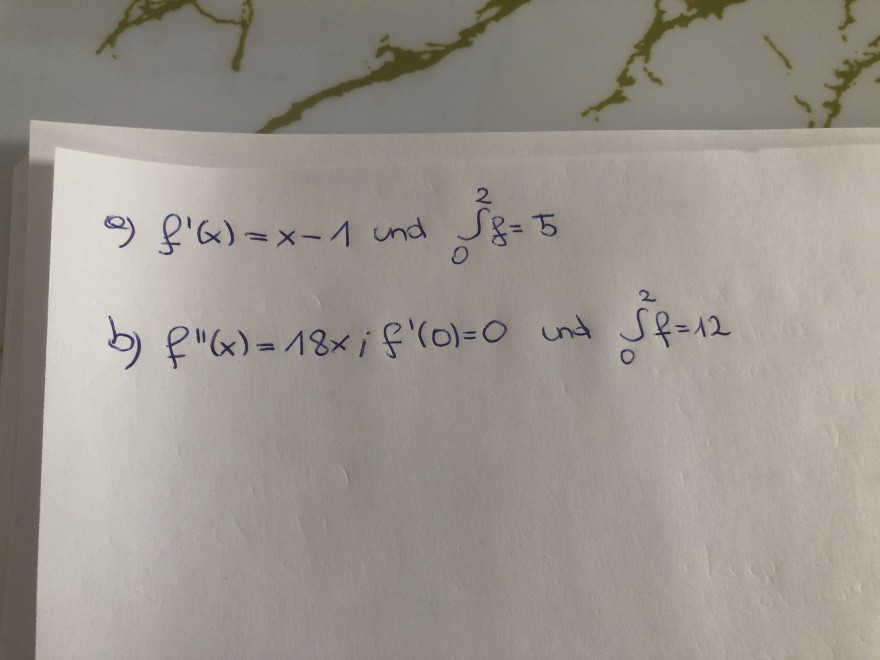 a) f'(x) = x - 1 und ∫₀² f = 5
b) f''(x) = 18x ; f'(0) = 0 und ∫₀² f = 12